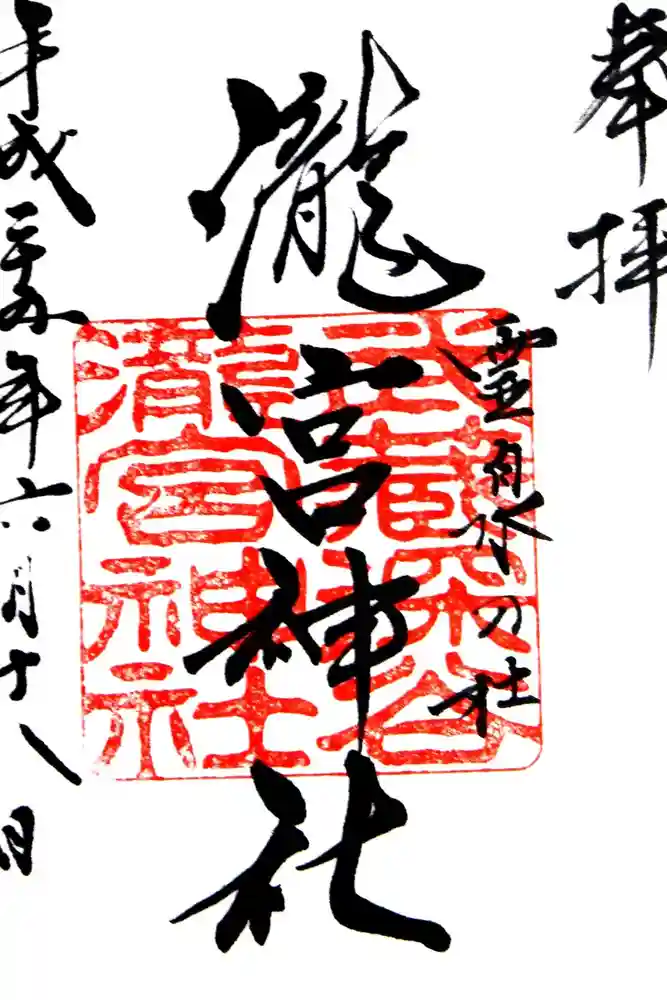 奉拝
霊泉の社
瀧宮神社
武藏深谷
瀧宮神社
平成二十五年六月十八日